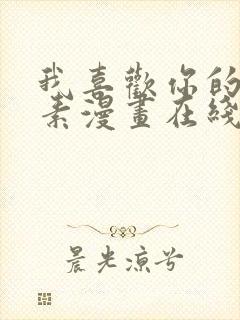 我喜歡你的
素漫畫在綫
晨光涼兮